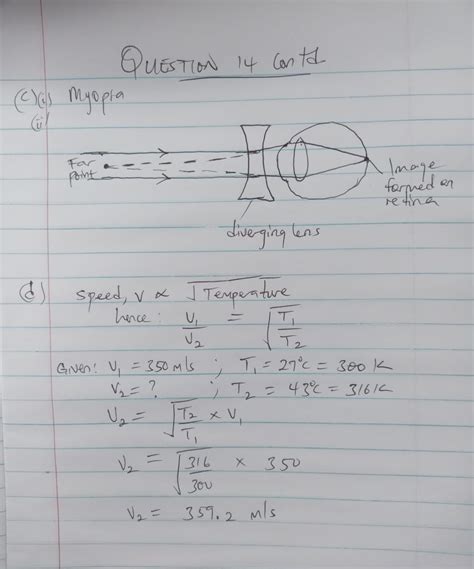 QUESTION 14 Contd
(c)(i) Myopia
(ii)
Far point
Image formed on retina
diverging lens
(d) speed, V ∝ √Temperature
hence: V₁/V₂ = √(T₁/T₂)
Given: V₁ = 350 m/s ; T₁ = 27°C = 300 K
V₂ = ? ; T₂ = 43°C = 316K
V₂ = √(T₂/T₁) × V₁
V₂ = √(316/300) × 350
V₂ = 359.2 m/s